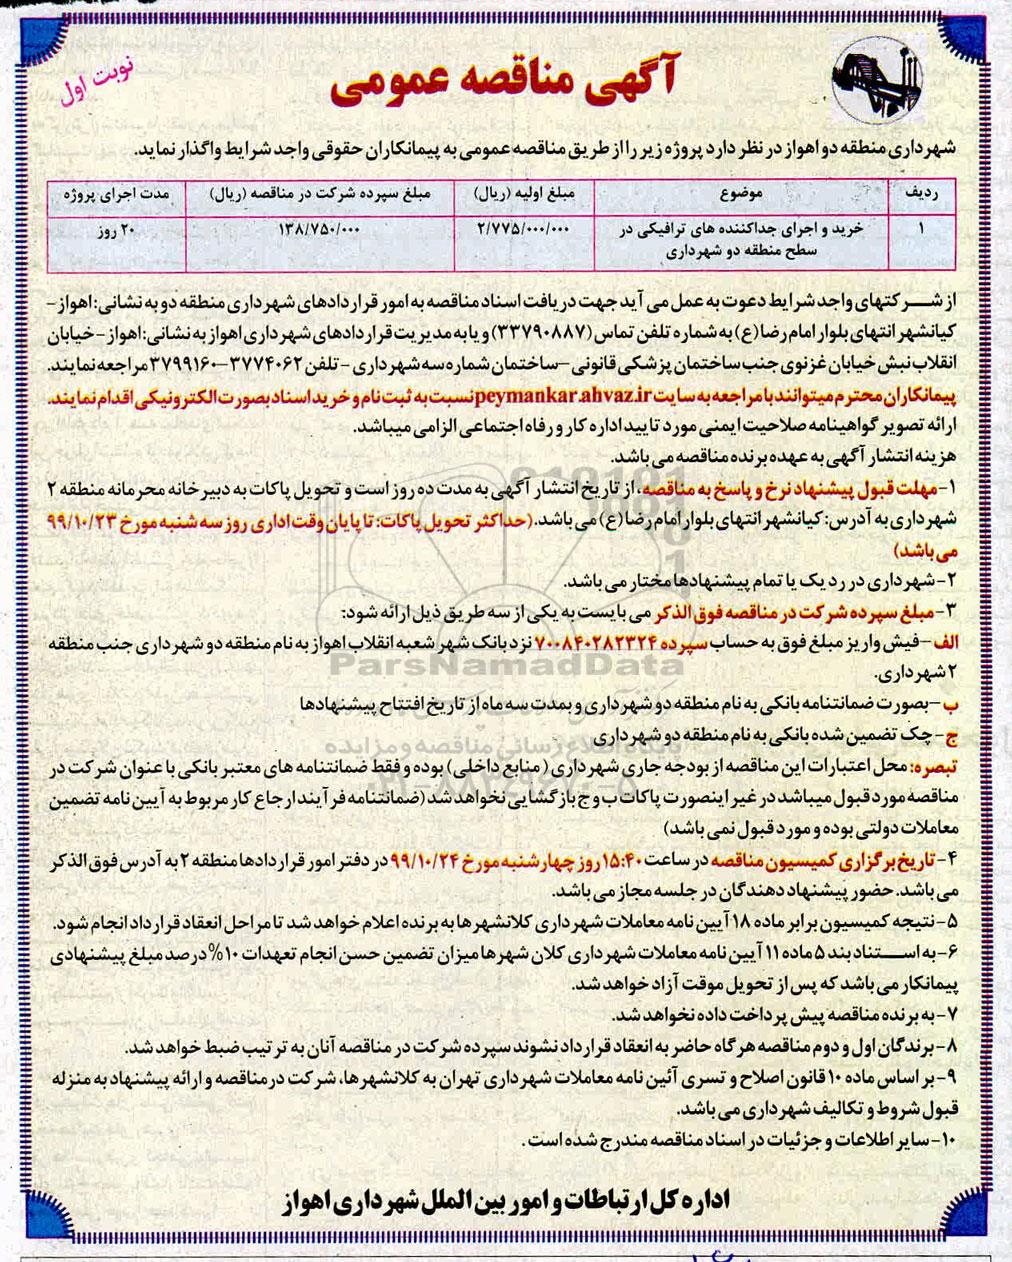 آگهی مناقصه عمومی
نوبت اول
شهرداری منطقه دو اهواز در نظر دارد پروژه زیر را از طریق مناقصه عمومی به پیمانکاران حقوقی واجد شرایط واگذار نماید.
ردیف موضوع مبلغ اولیه (ریال) مبلغ سپرده شرکت در مناقصه (ریال) مدت اجرای پروژه
۱ خرید و اجرای جداکننده های ترافیکی در ۲/۷۷۵/۰۰۰/۰۰۰ ۱۳۸/۷۵۰/۰۰۰ ۲۰ روز
سطح منطقه دو شهرداری
از شرکتهای واجد شرایط دعوت به عمل می آید جهت دریافت اسناد مناقصه به امور قراردادهای شهرداری منطقه دو به نشانی: اهواز-
کیانشهر انتهای بلوار امام رضا (ع) به شماره تلفن تماس (۳۳۷۹۰۸۸۷) و یا به مدیریت قراردادهای شهرداری اهواز به نشانی: اهواز- خیابان
انقلاب نبش خیابان غزنوی جنب ساختمان پزشکی قانونی –ساختمان شماره سه شهرداری - تلفن ۳۷۷۴۰۶۲–۳۷۹۹۱۶۰ مراجعه نمایند.
پیمانکاران محترم میتوانند با مراجعه به سایت peymankar.ahvaz.ir نسبت به ثبت نام و خرید اسناد بصورت الکترونیکی اقدام نمایند.
ارائه تصویر گواهینامه صلاحیت ایمنی مورد تایید اداره کار و رفاه اجتماعی الزامی میباشد.
هزینه انتشار آگهی به عهده برنده مناقصه می باشد.
۱-مهلت قبول پیشنهاد نرخ و پاسخ به مناقصه، از تاریخ انتشار آگهی به مدت ده روز است و تحویل پاکات به دبیرخانه محرمانه منطقه ۲
شهرداری به آدرس: کیانشهر انتهای بلوار امام رضا (ع) می باشد.(حداکثر تحویل پاکات: تا پایان وقت اداری روز سه شنبه مورخ ۹۹/۱۰/۲۳
می باشد)
۲-شهرداری در رد یک یا تمام پیشنهادها مختار می باشد.
۳-مبلغ سپرده شرکت در مناقصه فوق الذکر می بایست به یکی از سه طریق ذیل ارائه شود:
الف-فیش واریز مبلغ فوق به حساب سپرده ۷۰۰۸۴۰۲۸۲۳۲۴ نزد بانک شهر شعبه انقلاب اهواز به نام منطقه دو شهرداری جنب منطقه
۲ شهرداری.
ParsNamadData
ب-بصورت ضمانتنامه بانکی به نام منطقه دو شهرداری و بمدت سه ماه از تاریخ افتتاح پیشنهادها
ج-چک تضمین شده بانکی به نام منطقه دو شهرداری
تبصره: محل اعتبارات این مناقصه از بودجه جاری شهرداری (منابع داخلی) بوده و فقط ضمانتنامه های معتبر بانکی با عنوان شرکت در
مناقصه مورد قبول میباشد در غیر اینصورت پاکات ب و ج بازگشایی نخواهد شد (ضمانتنامه فرآیند ارجاع کار مربوط به آیین نامه تضمین
معاملات دولتی بوده و مورد قبول نمی باشد)
۴-تاریخ برگزاری کمیسیون مناقصه در ساعت ۱۵:۴۰ روز چهارشنبه مورخ ۹۹/۱۰/۲۴ در دفتر امور قراردادها منطقه ۲ به آدرس فوق الذکر
می باشد. حضور پیشنهاد دهندگان در جلسه مجاز می باشد.
۵-نتیجه کمیسیون برابر ماده ۱۸ آیین نامه معاملات شهرداری کلانشهرها به برنده اعلام خواهد شد تا مراحل انعقاد قرارداد انجام شود.
۶-به استناد بند ۵ ماده ۱۱ آیین نامه معاملات شهرداری کلان شهرها میزان تضمین حسن انجام تعهدات ۱۰% درصد مبلغ پیشنهادی
پیمانکار می باشد که پس از تحویل موقت آزاد خواهد شد.
۷-به برنده مناقصه پیش پرداخت داده نخواهد شد.
۸-برندگان اول و دوم مناقصه هرگاه حاضر به انعقاد قرارداد نشوند سپرده شرکت در مناقصه آنان به ترتیب ضبط خواهد شد.
۹-بر اساس ماده ۱۰ قانون اصلاح و تسری آئین نامه معاملات شهرداری تهران به کلانشهرها، شرکت در مناقصه و ارائه پیشنهاد به منزله
قبول شروط و تکالیف شهرداری می باشد.
۱۰-سایر اطلاعات و جزئیات در اسناد مناقصه مندرج شده است.
اداره کل ارتباطات و امور بین الملل شهرداری اهواز